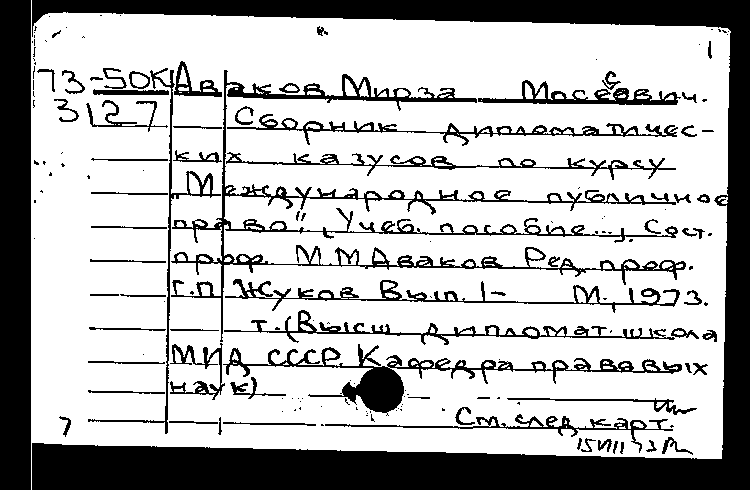 1
73-50К Аваков, Мирза Мосесович.
3127 Сборник дипломатичес-
ких казусов по курсу
„Международное публичное
право", [Учеб. пособие...]. Сост.
проф. М.М.Аваков Ред. проф.
Г.П Жуков Вып. 1- М., 1973.
т. (Высш. дипломат. школа
МИД СССР. Кафедра правовых
наук)
См. след. карт.
7
15 VIII 73